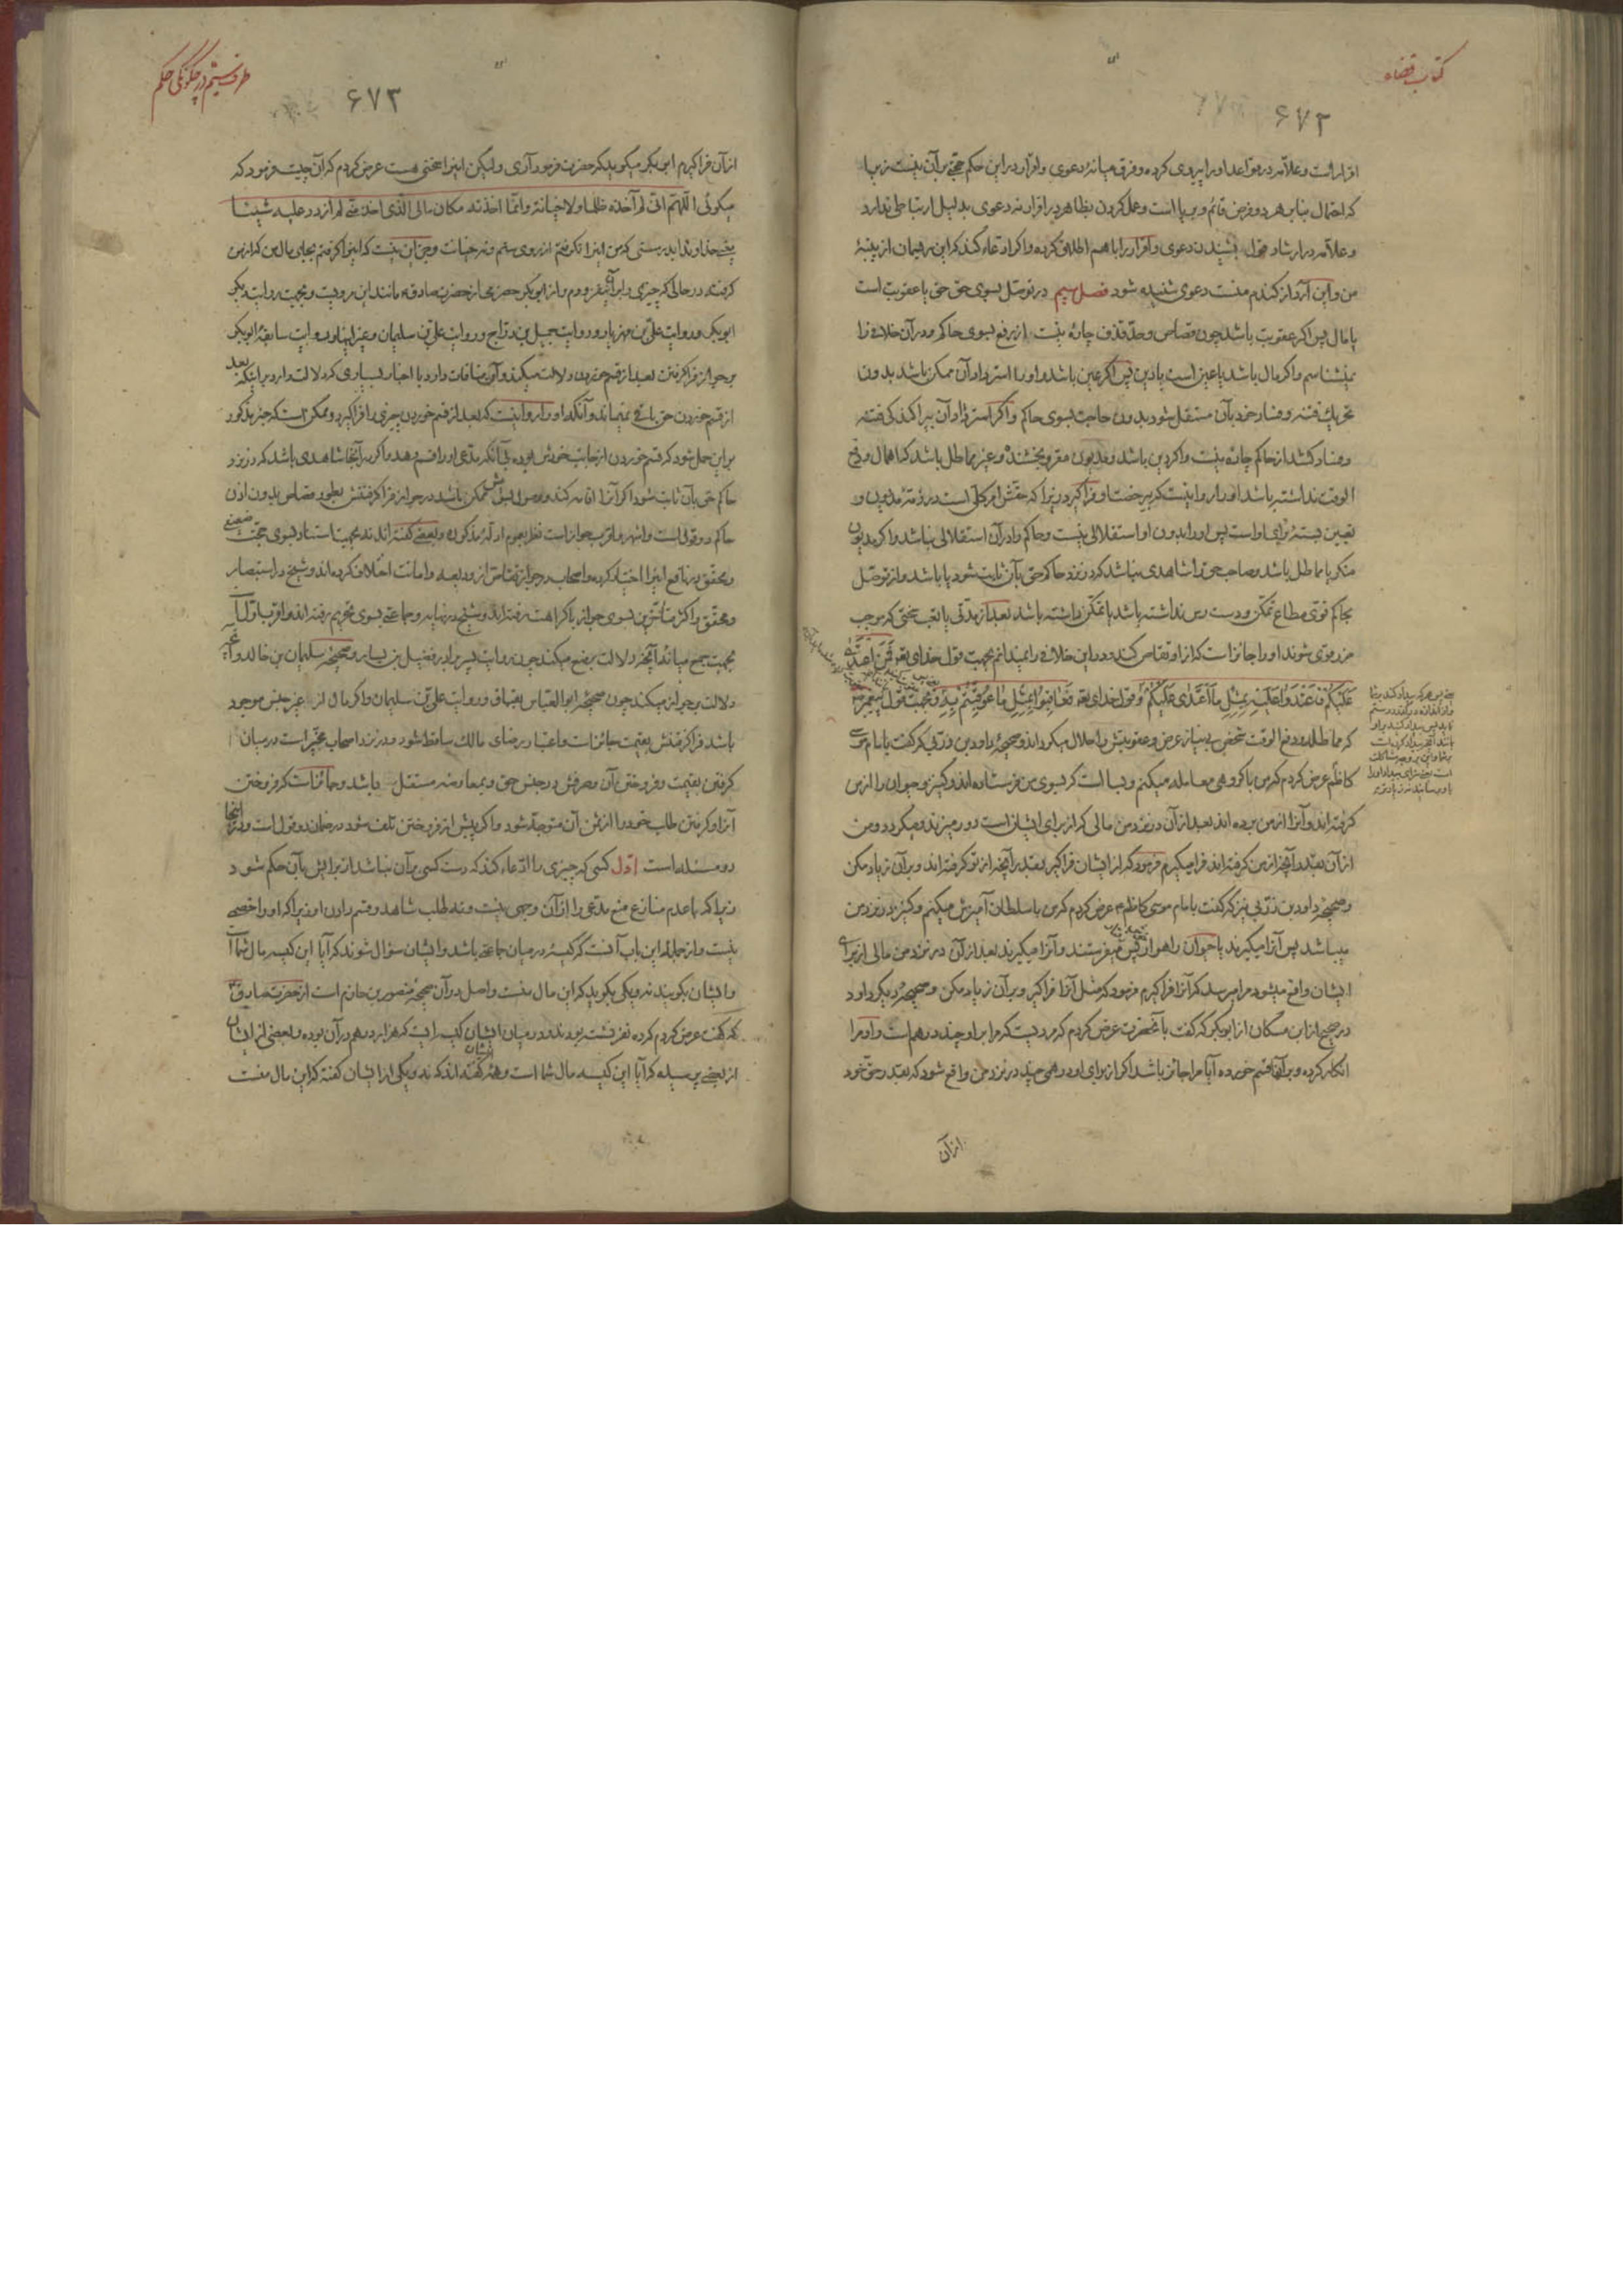 کتاب قضاء
۶۷۲
اقرار است و علامه در قواعد او را پیروی کرده و فرق میانهٔ دعوی و اقرار در این حکم حجتی بر آن نیست زیرا
که احتمال بنا بر هر دو فرض قائم و برپا است و عمل کردن بظاهر در اقرار نه دعوی بدلیل ارتباطی ندارد
و علامه در ارشاد قول بشنیدن دعوی و اقرار را با هم اطلاق کرده و اگر ادعاء کند که این ریسمان از پنبهٔ
من و این آرد از گندم منست دعوی شنیده شود فصل سیم در توصل بسوی حق حق یا عقوبت است
یا مال پس اگر عقوبت باشد چون قصاص و حد قذف چاره نیست از رفع بسوی حاکم و در آن خلافی را
نمیشناسم و اگر مال باشد یا عین است یا دین پس اگر عین باشد و او را استرداد آن ممکن باشد بدون
تحریک فتنه و فساد خود بآن مستقل شود بدون حاجت بسوی حاکم و اگر استرداد آن بپراکندگی فتنه
و فساد کشد از حاکم چاره نیست و اگر دین باشد و مدیون مقر و بخشنده و غیر مماطل باشد که اهمال و دفع
الوقت نداشته باشد او را روا نیست که بی رخصت او فرا گیرد زیرا که حقش امر کلی است در ذمهٔ مدیون و
تعیین بستهٔ برای او است پس او را بدون او استقلالی نیست و حاکم را در آن استقلالی نباشد و اگر مدیون
منکر یا مماطل باشد و صاحب حق را شاهدی نباشد که در نزد حاکم حق بآن ثابت شود یا باشد و از توصل
بحاکم قوی مطاع تمکن و دست رس نداشته باشد یا تمکن داشته باشد بعد از مدتی یا تعب سختی که موجب
ضرر قوی شوند او را جائز است که از او تقاص کند و در این خلافی را نمیدانم بجهت قول خدای تعالی فمن اعتدی
علیکم فاعتدوا علیه بمثل ما اعتدی علیکم و قول خدای تعالی فعاقبوا بمثل ما عوقبتم به و بجهت قول پیغمبر ص
که مماطله و دفع الوقت شخص بی نیاز عرض و عقوبتش را حلال میگرداند و صحیحهٔ داود بن زربی که گفت بامام موسی
کاظم عرض کردم که من با گروهی معامله میکنم و بسا است که بسوی من فرستاده اند و کنیز و حیوان را از من
گرفته اند و آنرا از من برده اند بعد از آن در نزد من مالی که از برای ایشان است دور میزند و میگردد و من
از آن بقدر آنچه از من گرفته اند فرا میگیرم فرمود که از ایشان فرا گیر بقدر آنچه از تو گرفته اند و بر آن زیاد مکن
و صحیحهٔ داود بن زربی نیز که گفت بامام موسی کاظم ع عرض کردم که من با سلطان آمیزش میکنم و کنیز در نزد من
میباشد پس آنرا میگیرند یا حیوان راهوار پس میفرستند و آنرا میگیرند بعد از آن در نزد من مالی از برای
ایشان واقع میشود مرا میرسد که آنرا فرا گیرم فرمود که مثل آنرا فرا گیر و بر آن زیاد مکن و صحیحهٔ دیگر داود
در صحیح از ابن مسکان از ابو بکر که گفت با آنحضرت عرض کردم که مردیست که مرا بر او چند درهم است و او مرا
انکار کرده و بر آنها قسم خورده آیا مرا جائز باشد اگر از برای او درهمی چند در نزد من واقع شود که بقدر حق خود
از آن
طرف ششم در چگونگی حکم
۶۷۳
از آن فرا گیرم ابو بکر میگوید که حضرت فرمود آری ولیکن اینرا سخنی هست عرض کردم که آن چیست فرمود که
میگوئی اللهم انی لم آخذه ظلما ولا خیانة وانما اخذته مکان مالی الذی اخذ منی لم ازدد علیه شیئا
یعنی خداوندا بدرستی که من اینرا نگرفتم از روی ستم و نه خیانت و جز این نیست که اینرا گرفتم بجای مال من که از من
گرفته در حالی که چیزی را بر آن نیفزودم و از ابو بکر حضرمی از حضرت صادق ع مانند این مرویست و بجهت روایت دیگر
ابو بکر و روایت علی بن مهزیار و روایت جمیل بن دراج و روایت علی بن سلیمان و غیر اینها و روایت سابقهٔ ابو بکر
بر جواز فرا گرفتن بعد از قسم خوردن دلالت میکند و آن منافات دارد با اخبار بسیاری که دلالت دارد بر اینکه بعد
از قسم خوردن حق باقی نمیماند و آنکه او را روا نیست که بعد از قسم خوردن چیزی را فرا گیرد و ممکن است که خبر مذکور
بر این حمل شود که قسم خوردن از جانب خودش بوده بی آنکه مدعی او را قسم دهد و اگر در آنجا شاهدی باشد که در نزد
حاکم حق بآن ثابت شود اگر آنرا اقامه کند و وصول بسویش ممکن باشد در جواز فرا گرفتنش بطور قصاص بدون اذن
حاکم دو قول است و اشهر و اقرب جواز است نظر بعموم ادلهٔ مذکوره و بعضی گفته اند نه بجهت استناد بسوی حجت ضعیفی
و محقق در نافع اینرا اختیار کرده و اصحاب در جواز تقاص از ودیعه و امانت اختلاف کرده اند و شیخ در استبصار
و محقق و اکثر متأخرین بسوی جواز با کراهت رفته اند و شیخ در نهایه و جماعتی بسوی تحریم رفته اند و اقرب اول است
بجهت جمع میانهٔ آنچه دلالت بر منع میکند چون روایت پسر برادر فضیل بن یسار و صحیحهٔ سلیمان بن خالد و آنچه
دلالت بر جواز میکند چون صحیحهٔ ابو العباس بقباق و روایت علی بن سلیمان و اگر مال از غیر جنس موجود
باشد فرا گرفتنش بقیمت جائز است و اعتبار رضای مالک ساقط شود و در نزد اصحاب مخیر است در میان
گرفتن بقیمت و فروختن بآن و صرفش در جنس حق و بمعاوضه مستقل باشد و جائز است که فروختن
آنرا و گرفتن طلب خود را از ثمن آن متوجه شود و اگر پیش از فروختن تلف شود در ضمان دو قول است و در اینجا
دو مسئله است اول کسی که چیزی را ادعاء کند که دست کسی بر آن نباشد از برایش بآن حکم شود
زیرا که با عدم منازع منع مدعی را از آن وجهی نیست و نه طلب شاهد و قسم دادن او زیرا که او را خصمی
نیست و از جملهٔ این باب آنست که کیسهٔ در میان جماعتی باشد و ایشان سؤال شوند که آیا این کیسه مال شما است
و ایشان بگویند نه و یکی بگوید که این مال منست و اصل در آن صحیحهٔ منصور بن حازم است از حضرت صادق ع
که گفت عرض کردم که ده نفر نشسته بودند و در میان ایشان کیسه ایست که هزار درهم در آن بوده و بعضی از ایشان
از بعضی پرسیده که آیا این کیسه مال شما است و همهٔ ایشان گفته اند که نه و یکی از ایشان گفته که این مال منست